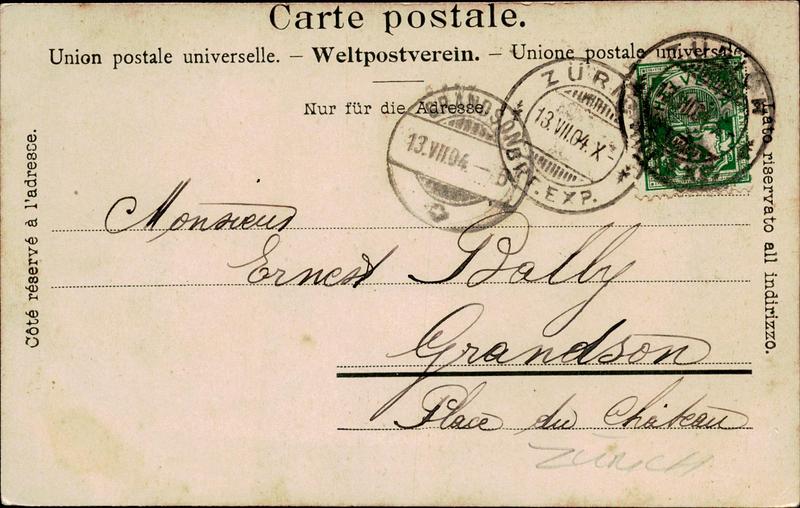 Carte postale.
Union postale universelle. – Weltpostverein. – Unione postale universale
Nur für die Adresse.
Côté réservé à l'adresse.
Lato riservato all indirizzo.
GRANDSON
13.VII.04.
ZÜRICH
13.VII.04.X-
BRF. EXP.
Monsieur
Ernest Bally
Grandson
Place du Château
ZÜRICH